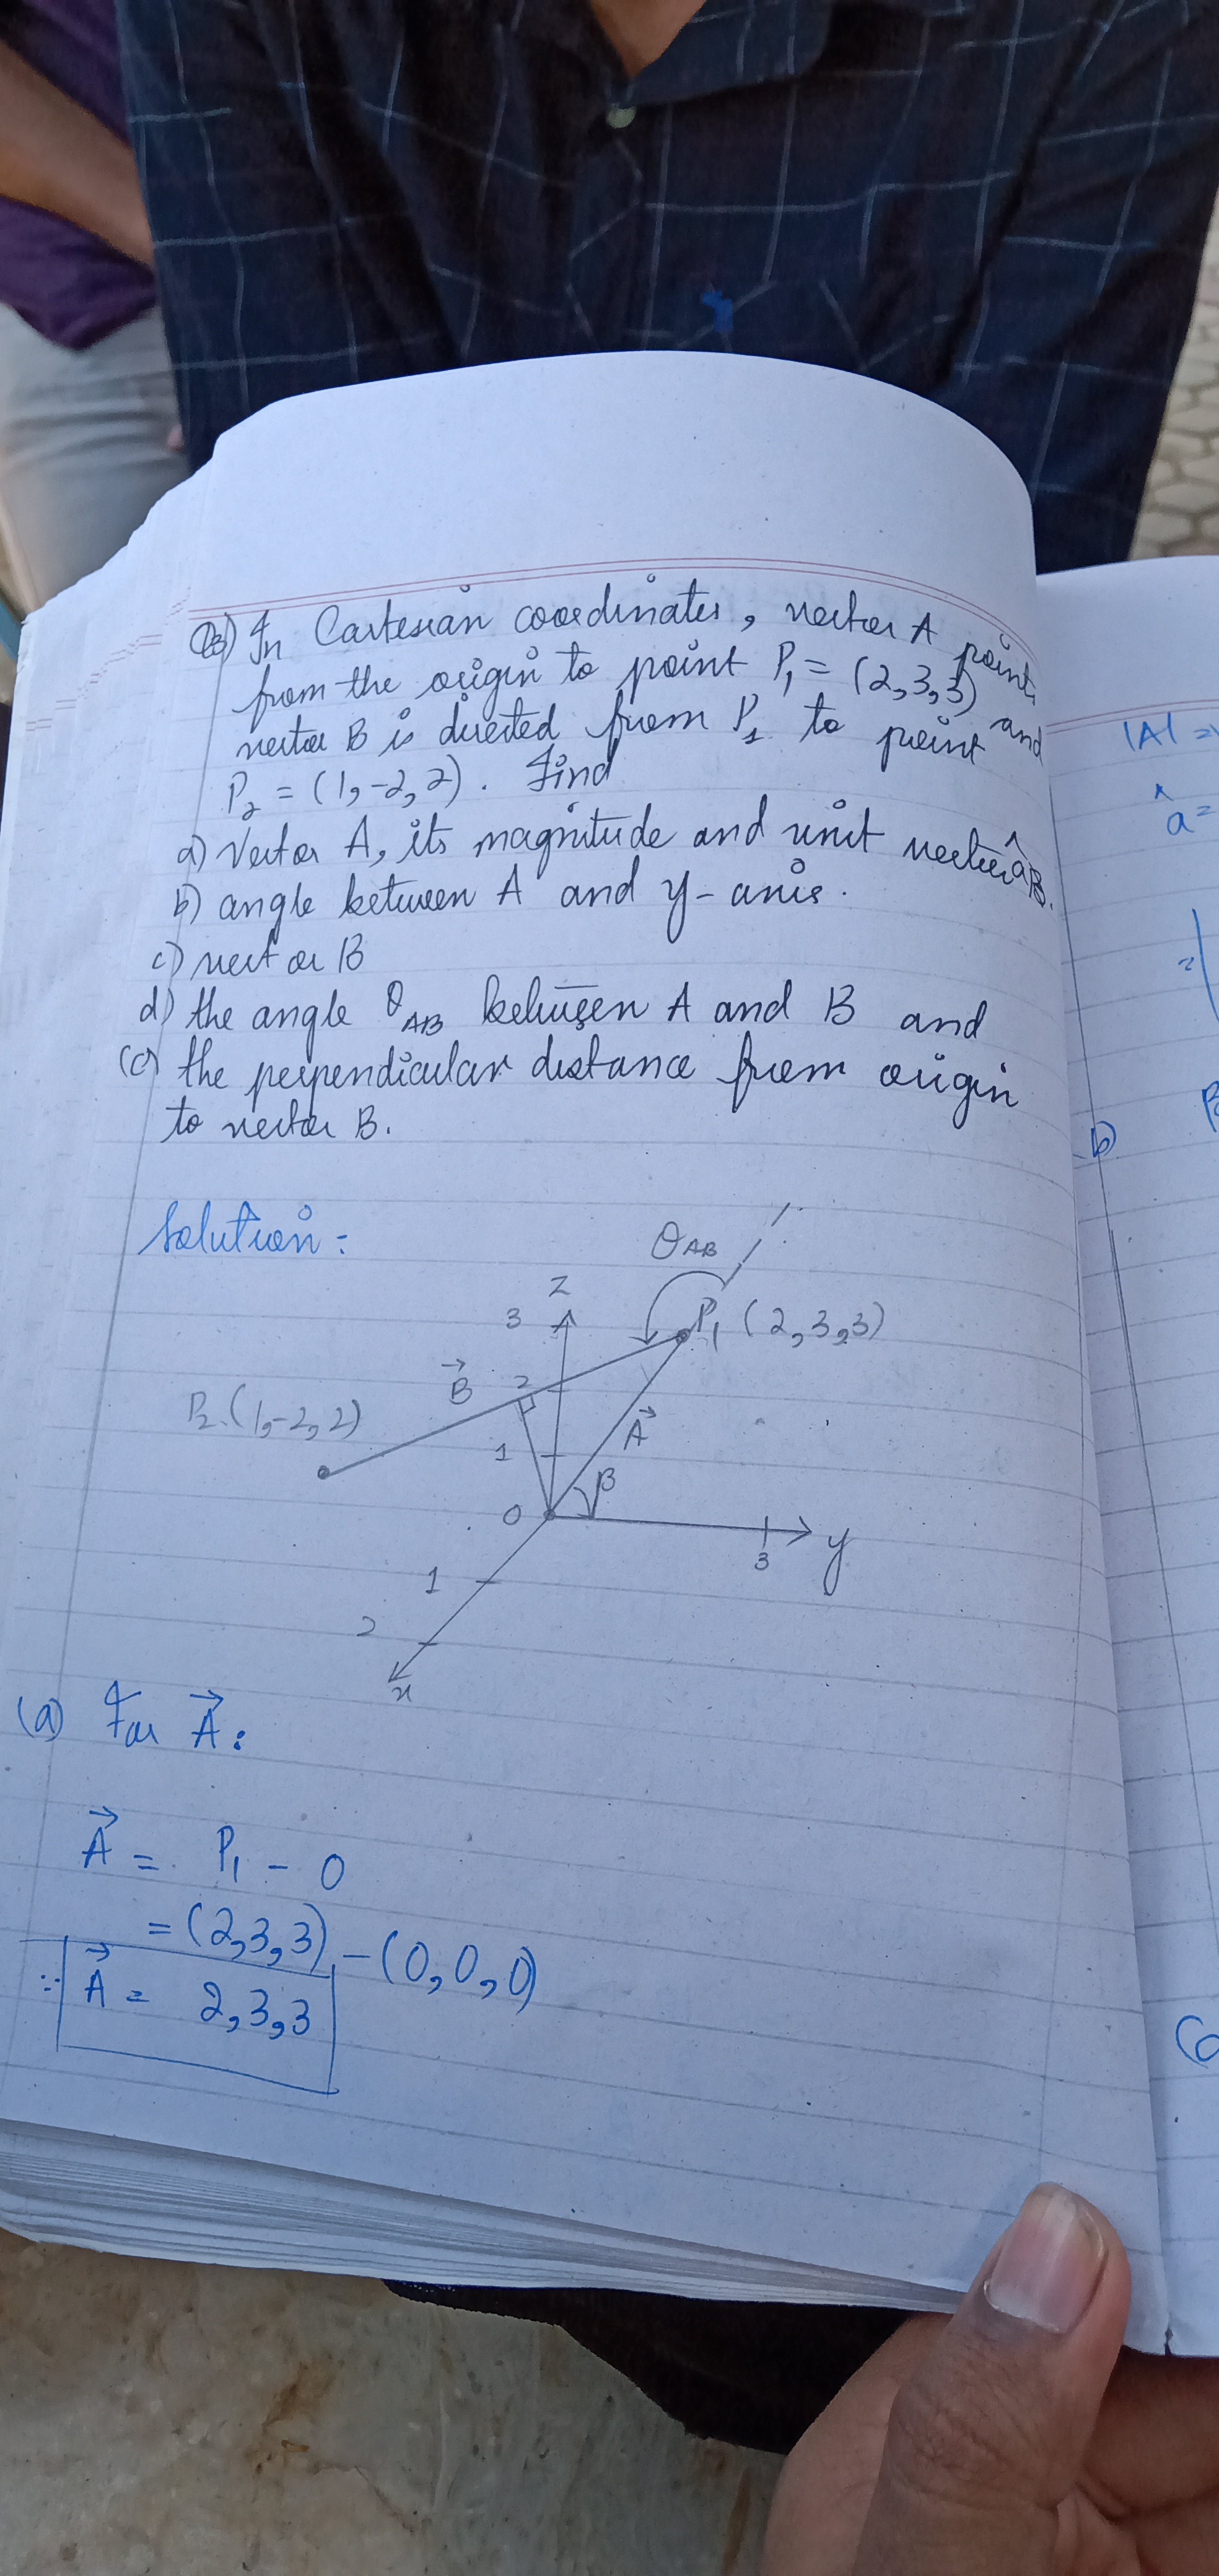 Q3) In Cartesian coordinates, vector A points
from the origin to point P₁ = (2,3,3) and
vector B is directed from P₁ to point
P₂ = (1,-2,2). Find
a) Vector A, its magnitude and unit vector âB.
b) angle between A and y-axis.
c) vector B
d) the angle θAB between A and B and
(e) the perpendicular distance from origin
to vector B.
Solution:
θAB
z
3
P₁ (2,3,3)
B⃗
2
P₂ (1,-2,2)
A⃗
1
β
0
3
y
1
2
x
(a) For A⃗:
A⃗ = P₁ - 0
= (2,3,3) - (0,0,0)
∵ A⃗ = 2,3,3
|A| =
â =
=
b)